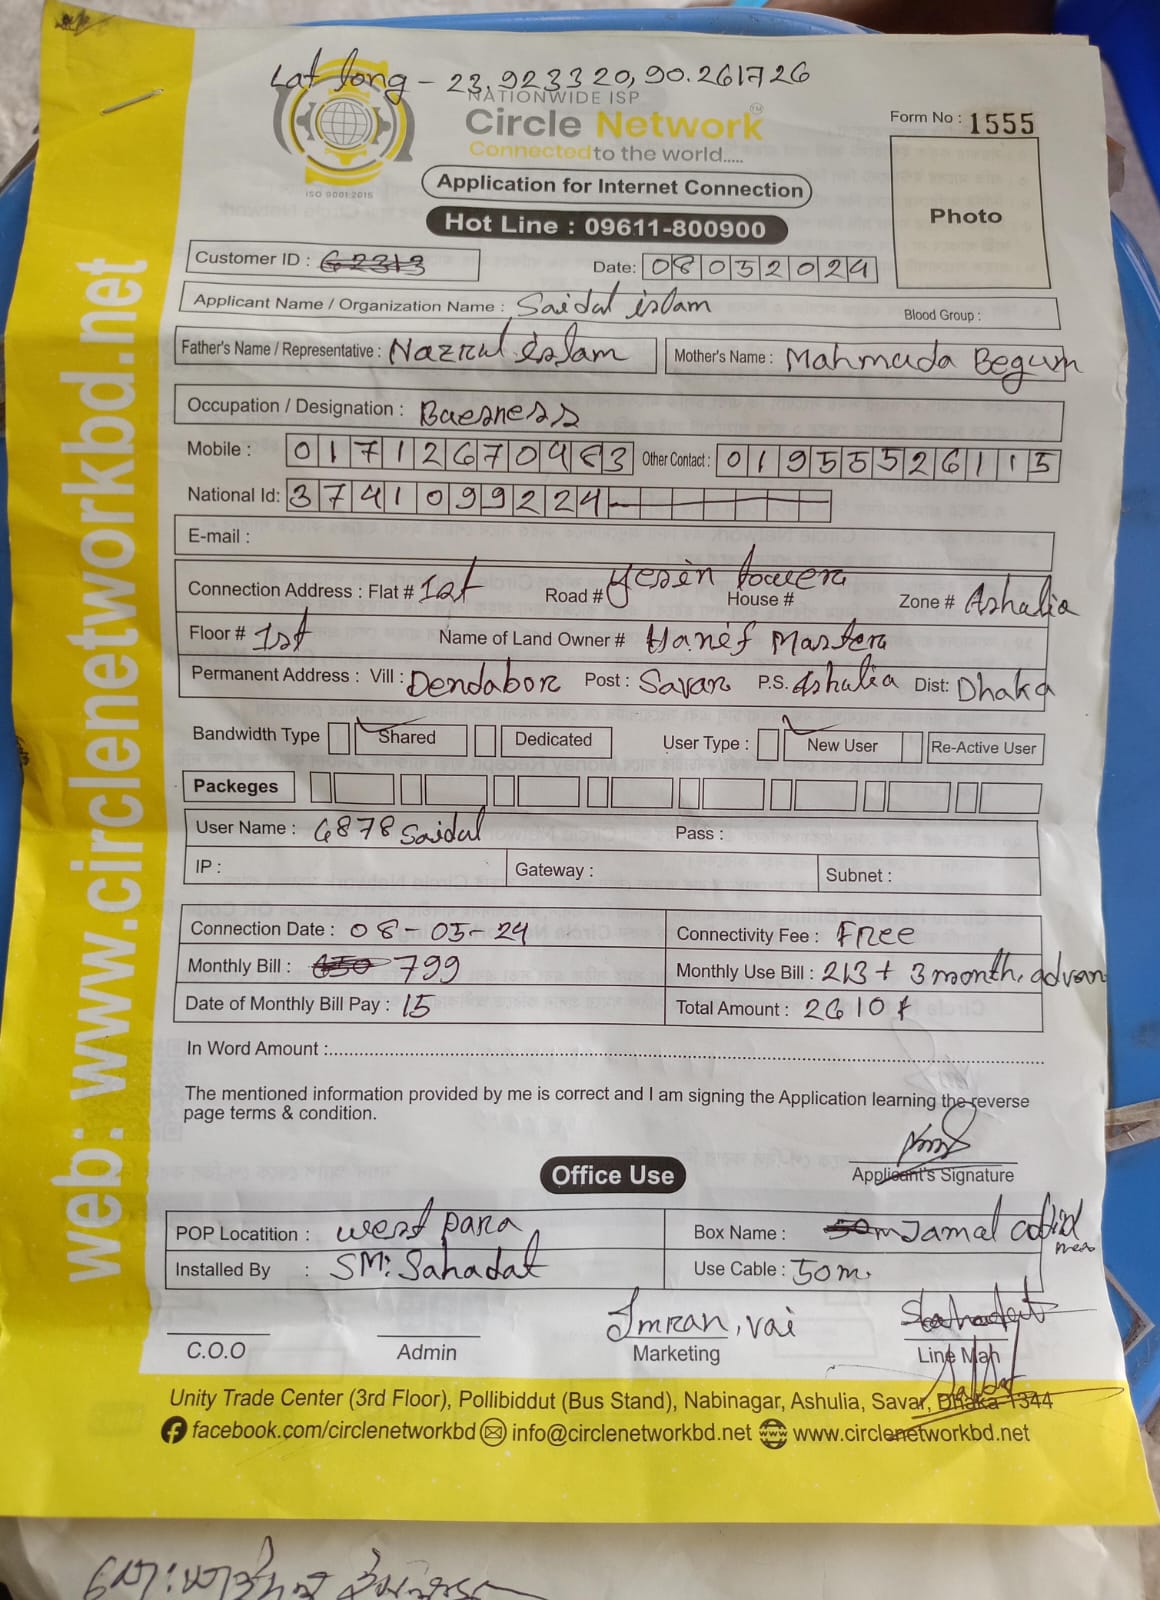 Lat long - 23.923320, 90.261726
NATIONWIDE ISP
Circle Network™
Connected to the world.....
ISO 9001:2015
Form No : 1555
Application for Internet Connection
Photo
Hot Line : 09611-800900
Customer ID : 62313
Date: 08052024
Applicant Name / Organization Name : Saidul islam
Blood Group :
Father's Name / Representative : Nazrul islam Mother's Name : Mahmuda Begum
Occupation / Designation : Baesness
Mobile : 01712670983 Other Contact : 01955526115
National Id: 3741099224
E-mail :
Connection Address : Flat # 1st Road # Yesin towera House # Zone # Ashulia
Floor # 1st Name of Land Owner # Hanif Mastera
Permanent Address : Vill : Dendabor Post : Savar P.S. Ashulia Dist: Dhaka
Bandwidth Type Shared Dedicated User Type : New User Re-Active User
Packeges
User Name : 6878 Saidul Pass :
IP : Gateway : Subnet :
Connection Date : 08-05-24 Connectivity Fee : Free
Monthly Bill : 650 799 Monthly Use Bill : 213 + 3 month, advan
Date of Monthly Bill Pay : 15 Total Amount : 2610
In Word Amount :
The mentioned information provided by me is correct and I am signing the Application learning the reverse
page terms & condition.
Applicant's Signature
Office Use
POP Locatition : West para Box Name : 50m Jamal
Installed By : SM: Sahadat Use Cable : 50m.
Imran, vai Sahadat
C.O.O Admin Marketing Line Man
Unity Trade Center (3rd Floor), Pollibiddut (Bus Stand), Nabinagar, Ashulia, Savar, Dhaka-1344
facebook.com/circlenetworkbd info@circlenetworkbd.net www www.circlenetworkbd.net
web: www.circlenetworkbd.net